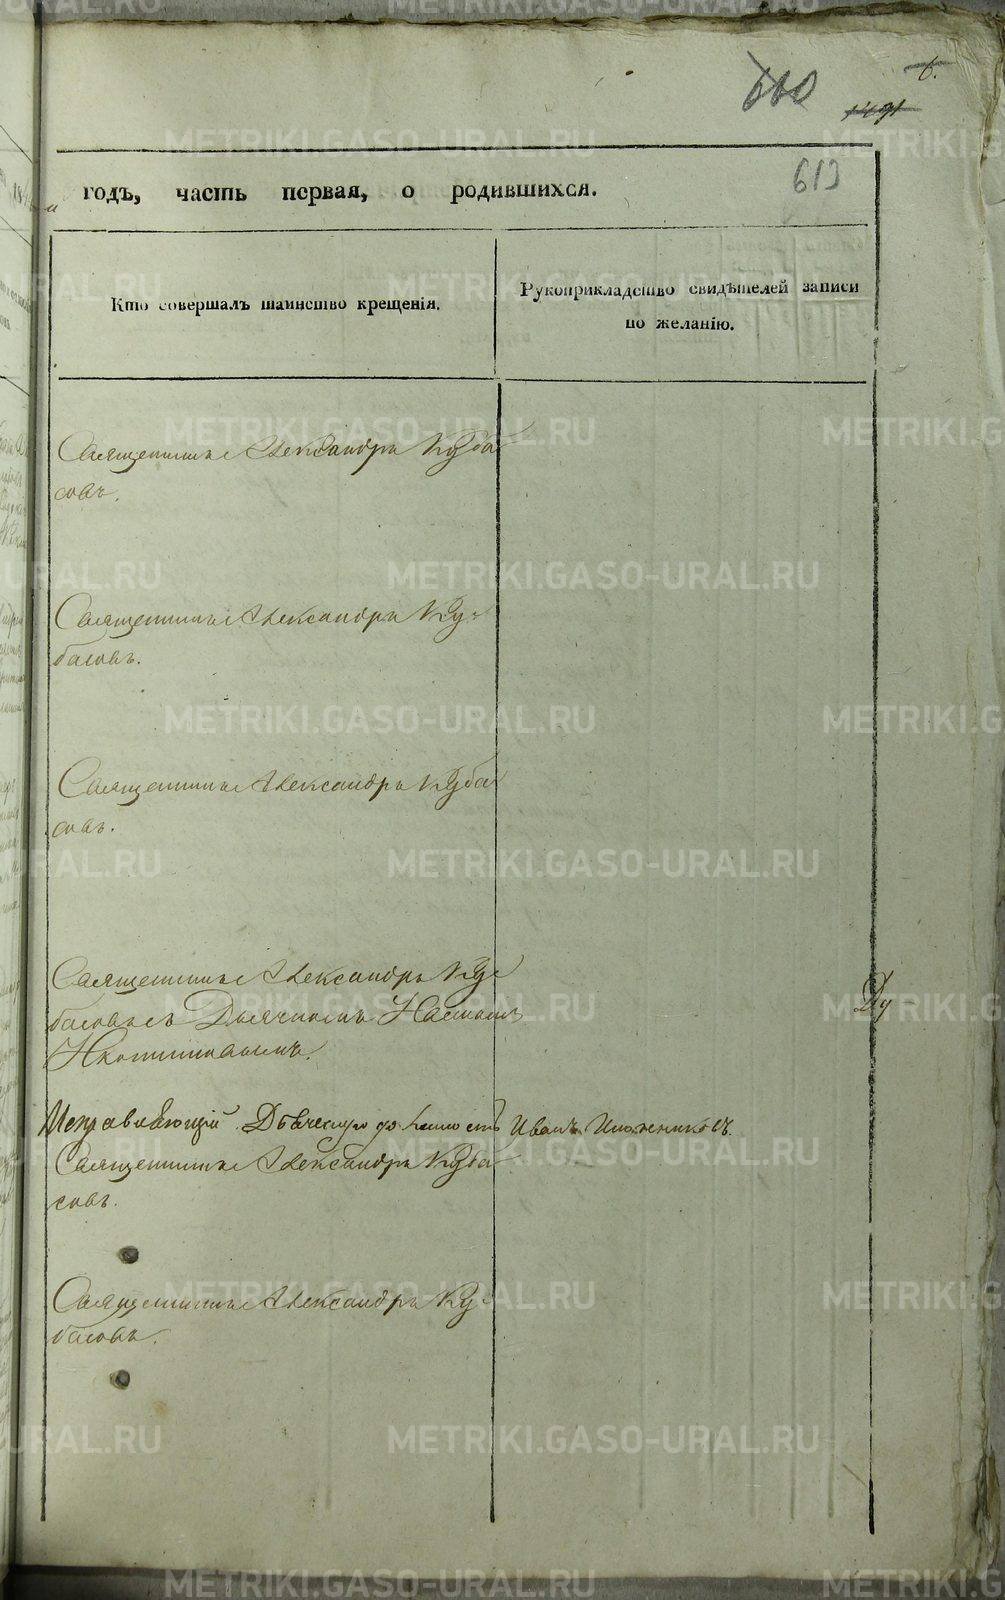 6.
660
1491
613
годъ, часть первая, о родившихся.
Кто совершалъ таинство крещенія.
Рукоприкладство свидѣтелей записи
по желанію.
Священникъ Александръ Куба
совъ.
Священникъ Александръ Ку-
басовъ.
Священникъ Александръ Куба
совъ.
Священникъ Александръ Ку-
басовъ съ Дьячкомъ
Ду
Исправляющій Дьяческую должность Иванъ
Священникъ Александръ Куба
совъ.
Священникъ Александръ Ку-
басовъ.
METRIKI.GASO-URAL.RU